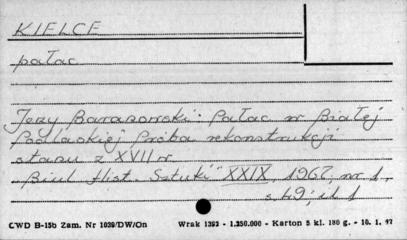 KIELCE
pałac
Jerzy Baranowski: Pałac w Białej
Podlaskiej Próba rekonstrukcji
stanu z XVII w.
Biul Hist. Sztuki" XXIX, 1967, nr 1,
s. 49; il. 1
CWD B-15b Zam. Nr 1039/DW/On Wrak 1393 - 1.250.000 - Karton 5 kl. 180 g. - 10. 1. 47